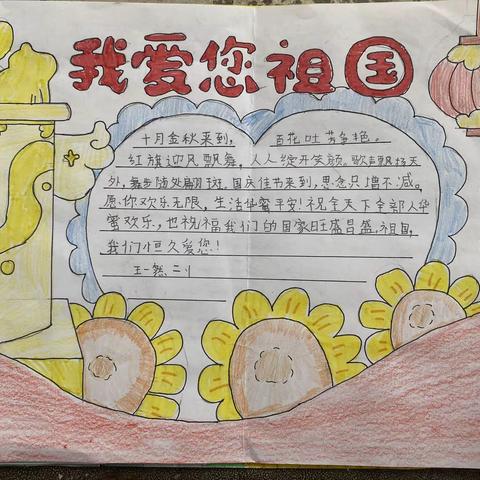 我爱您祖国
十月金秋来到, 百花吐芳争艳。
红旗迎风飘舞,人人绽开笑颜。歌声飘扬天
外,舞步随处翩跹,国庆佳节来到,思念只增不减。
愿你欢乐无限,生活甜蜜平安!祝全天下全部人华
蜜欢乐,也祝福我们的国家旺盛昌盛.祖国,
我们恒久爱您!
王一然 二